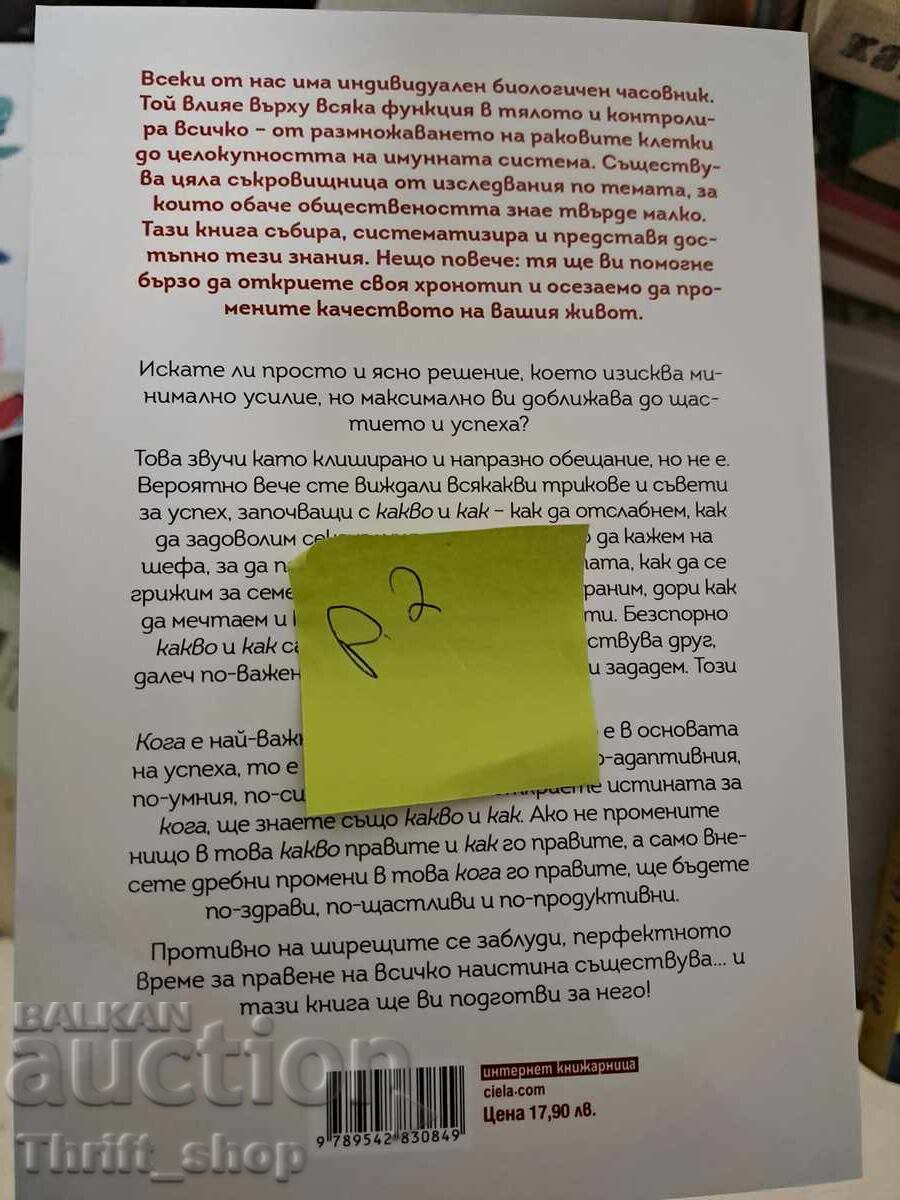 Всеки от нас има индивидуален биологичен часовник.
Той влияе върху всяка функция в тялото и контроли-
ра всичко – от размножаването на раковите клетки
до целокупността на имунната система. Съществу-
ва цяла съкровищница от изследвания по темата, за
които обаче обществеността знае твърде малко.
Тази книга събира, систематизира и представя дос-
тъпно тези знания. Нещо повече: тя ще ви помогне
бързо да откриете своя хронотип и осезаемо да про-
мените качеството на вашия живот.
Искате ли просто и ясно решение, което изисква ми-
нимално усилие, но максимално ви доближава до щас-
тието и успеха?
Това звучи като клиширано и напразно обещание, но не е.
Вероятно вече сте виждали всякакви трикове и съвети
за успех, започващи с какво и как – как да отслабнем, как
да задоволим да кажем на
шефа, за да как да се
грижим за дори как
да мечтаем и Безспорно
какво и как друг,
далеч зададем. Този
Кога е е в основата
на успеха, то е
по-умния, откриете истината за
кога, ще знаете също какво и как. Ако не промените
нищо в това какво правите и как го правите, а само вне-
сете дребни промени в това кога го правите, ще бъдете
по-здрави, по-щастливи и по-продуктивни.
Противно на ширещите се заблуди, перфектното
време за правене на всичко наистина съществува... и
тази книга ще ви подготви за него!
р. 2
BALKAN
auction
Thrift_shop
интернет книжарница
ciela.com
Цена 17,90 лв.
9 789542 830849